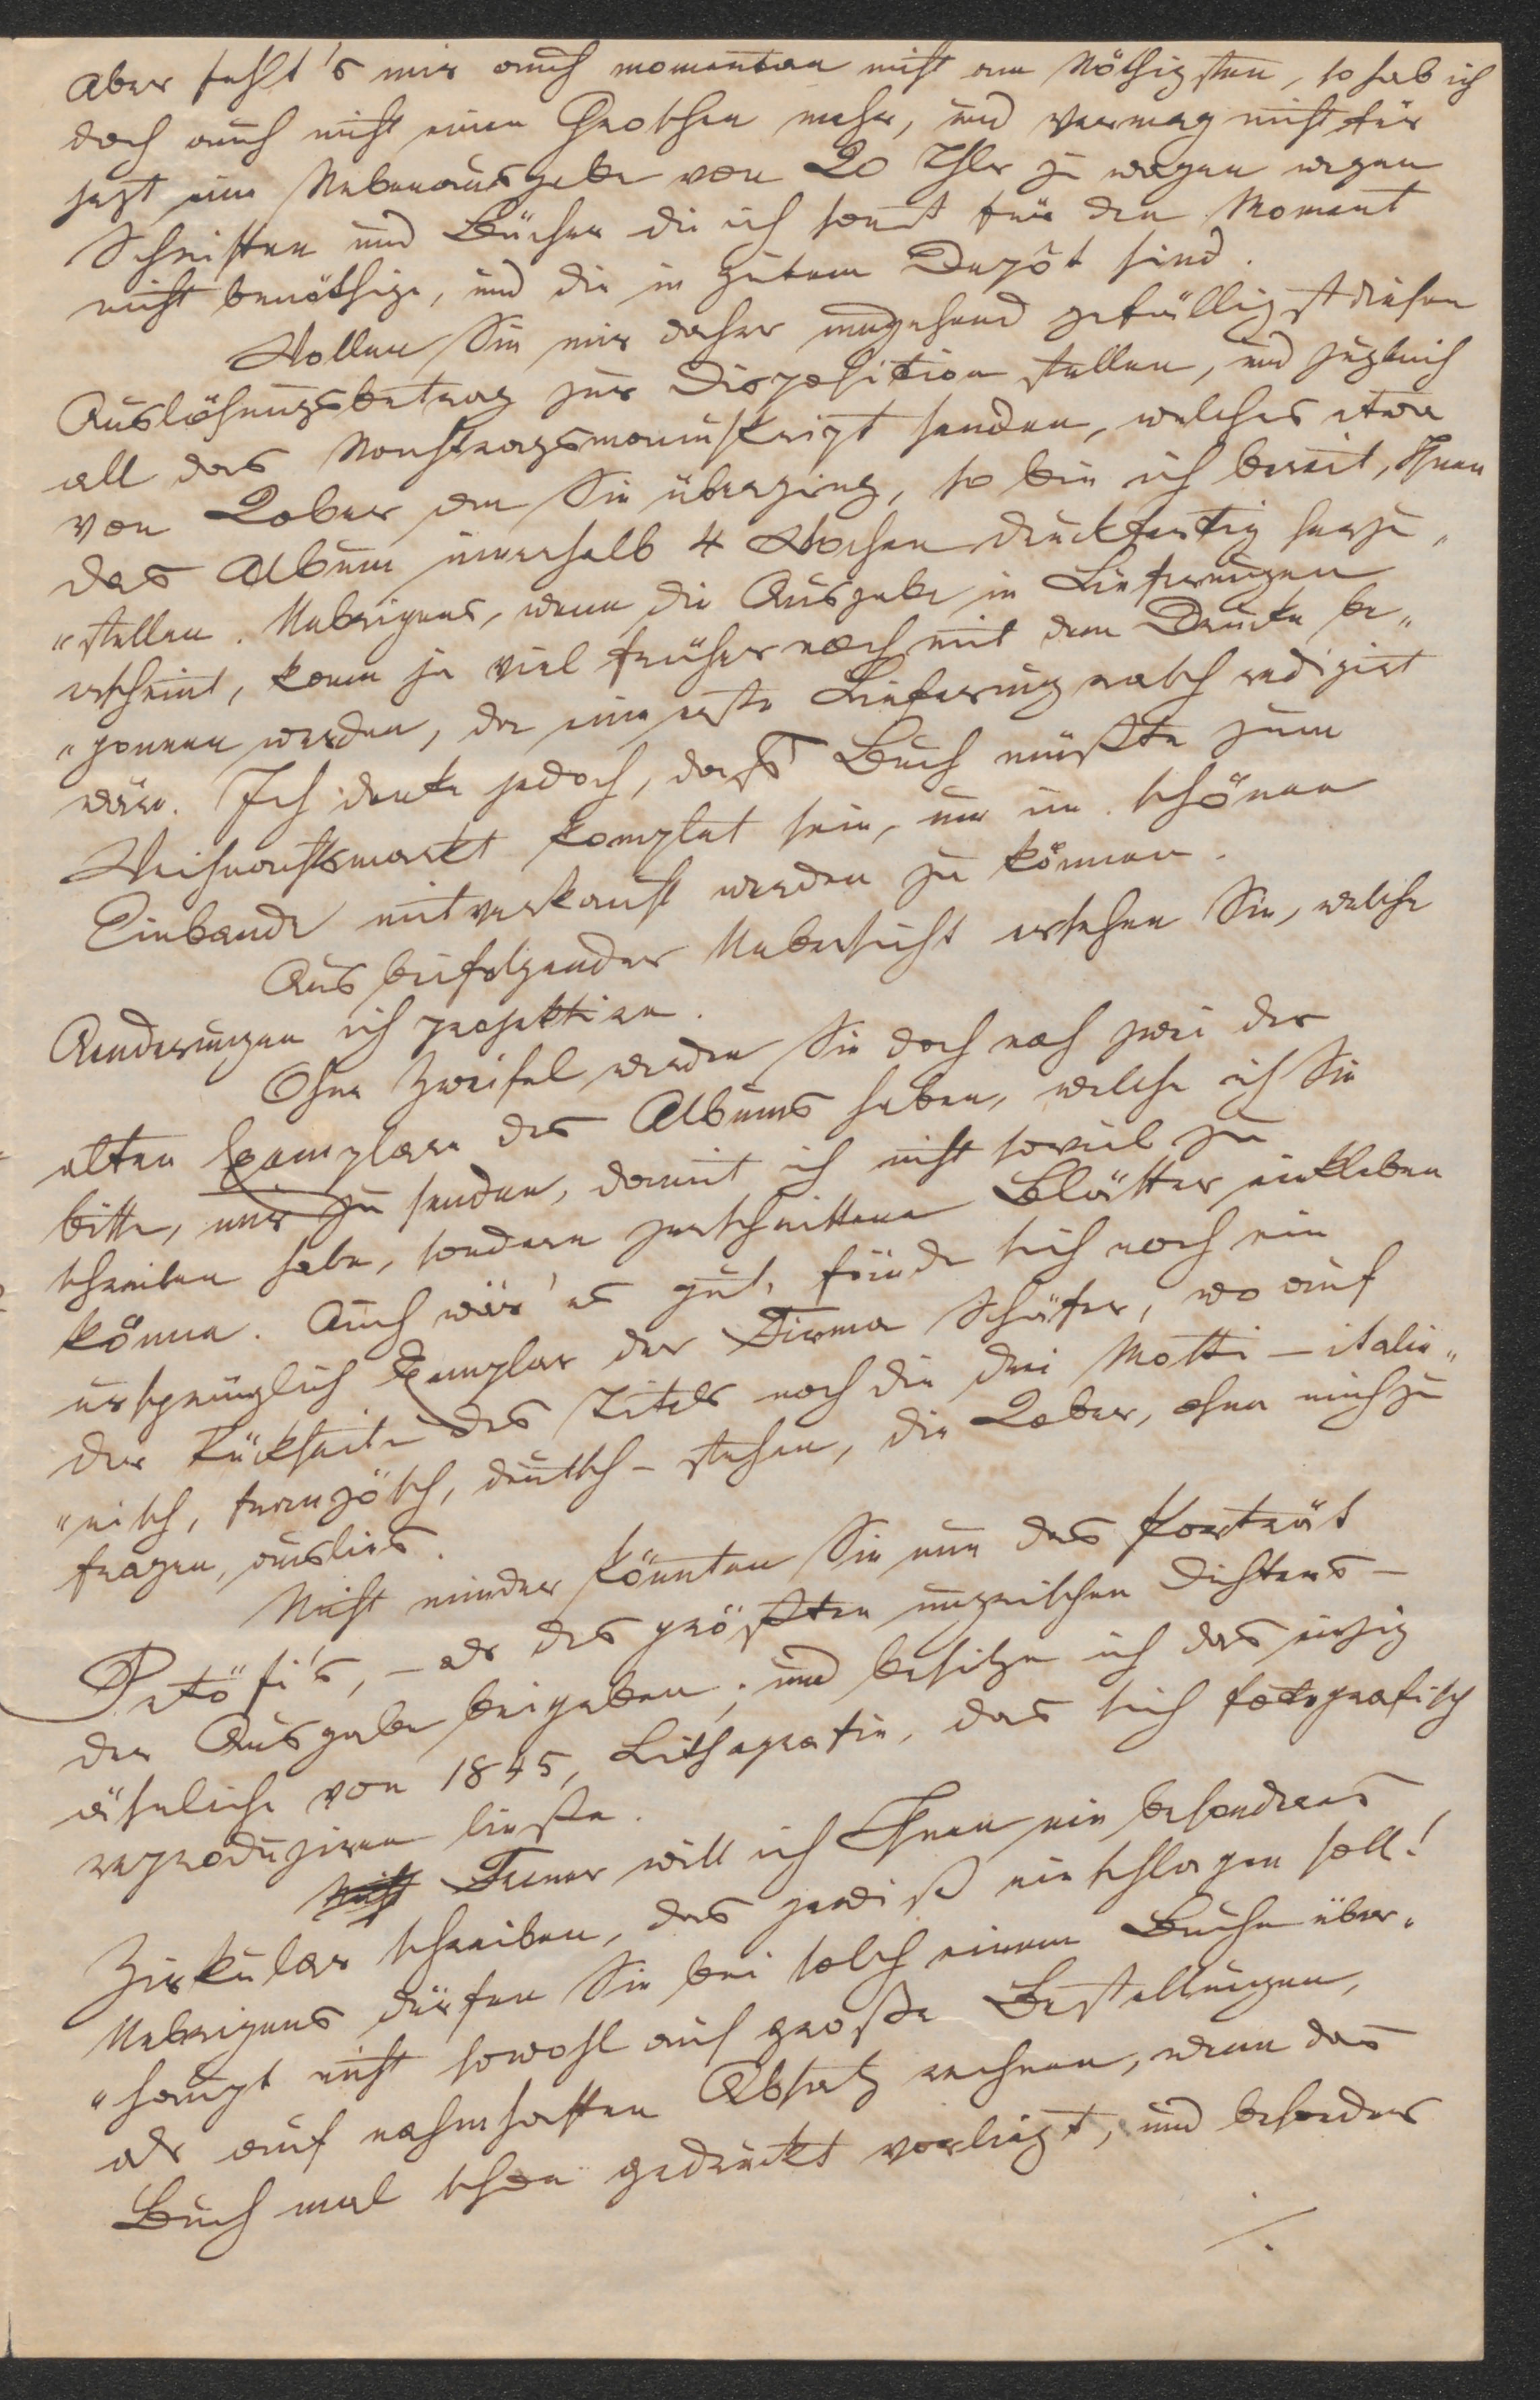 Aber fehlt's mir auch momentan nicht am Nöthigsten, so hab ich
doch auch nicht einen Groschen mehr, und vermag nicht für
jezt eine Nebenausgabe von 20 Thlr zu wagen wegen
Schriften und Bücher die ich sonst für den Moment
nicht benöthige, und die in gutem Depôt sind.
Wollen Sie mir daher umgehend gefälligst diesen
Auslösungsbetrag zur Disposition stellen, und zugleich
all das Nachtragsmanuskript senden, welches etwa
von Lober an Sie überging, so bin ich bereit, Ihnen
das Album innerhalb 4 Wochen druckfertig herzu„
„stellen. Uebrigens, wenn die Ausgabe in Lieferungen
erscheint, kann ja viel früher noch mit dem Drucke be„
„gonnen werden, da eine erste Lieferung rasch redigirt
wäre. Ich denke jedoch, das Buch müßte zum
Weihnachtsmarkt komplet sein, um im schönen
Einbande mitverkauft werden zu können.
Aus beifolgender Uebersicht ersehen Sie, welche
Aenderungen ich projektire.
Ohne Zweifel werden Sie doch noch zwei der
alten Exemplare des Albums haben, welche ich Sie
bitte, mir zu senden, damit ich nicht soviel zu
schreiben habe, sondern zerschnittene Blätter einkleben
könne. Auch wär' es gut, fände sich noch ein
ursprünglich Exemplar der Firma Schäfer, wo auf
der Rückseite des Titels noch die drei Motti – italie„
„nisch, französch, deutsch – stehen, die Lober, ohne mich zu
fragen, auslies.
Nicht minder könnten Sie nun das Porträt
Petöfi's, – als des größten ungrischen Dichters –
der Ausgabe beigeben; und besitze ich das einzig
ähnliche von 1845, Lithografie, das sich fotografisch
reproduziren ließe.
Nicht Ferner will ich Ihnen ein besonderes
Zirkular schreiben, das gewiß einschlagen soll!
Uebrigens dürfen Sie bei solch einem Buche über„
„haupt nicht sowohl auf große Bestellungen,
als auf nahmhaften Absatz rechnen, wenn das
Buch mal schon gedruckt vorliegt, und besonders
./.